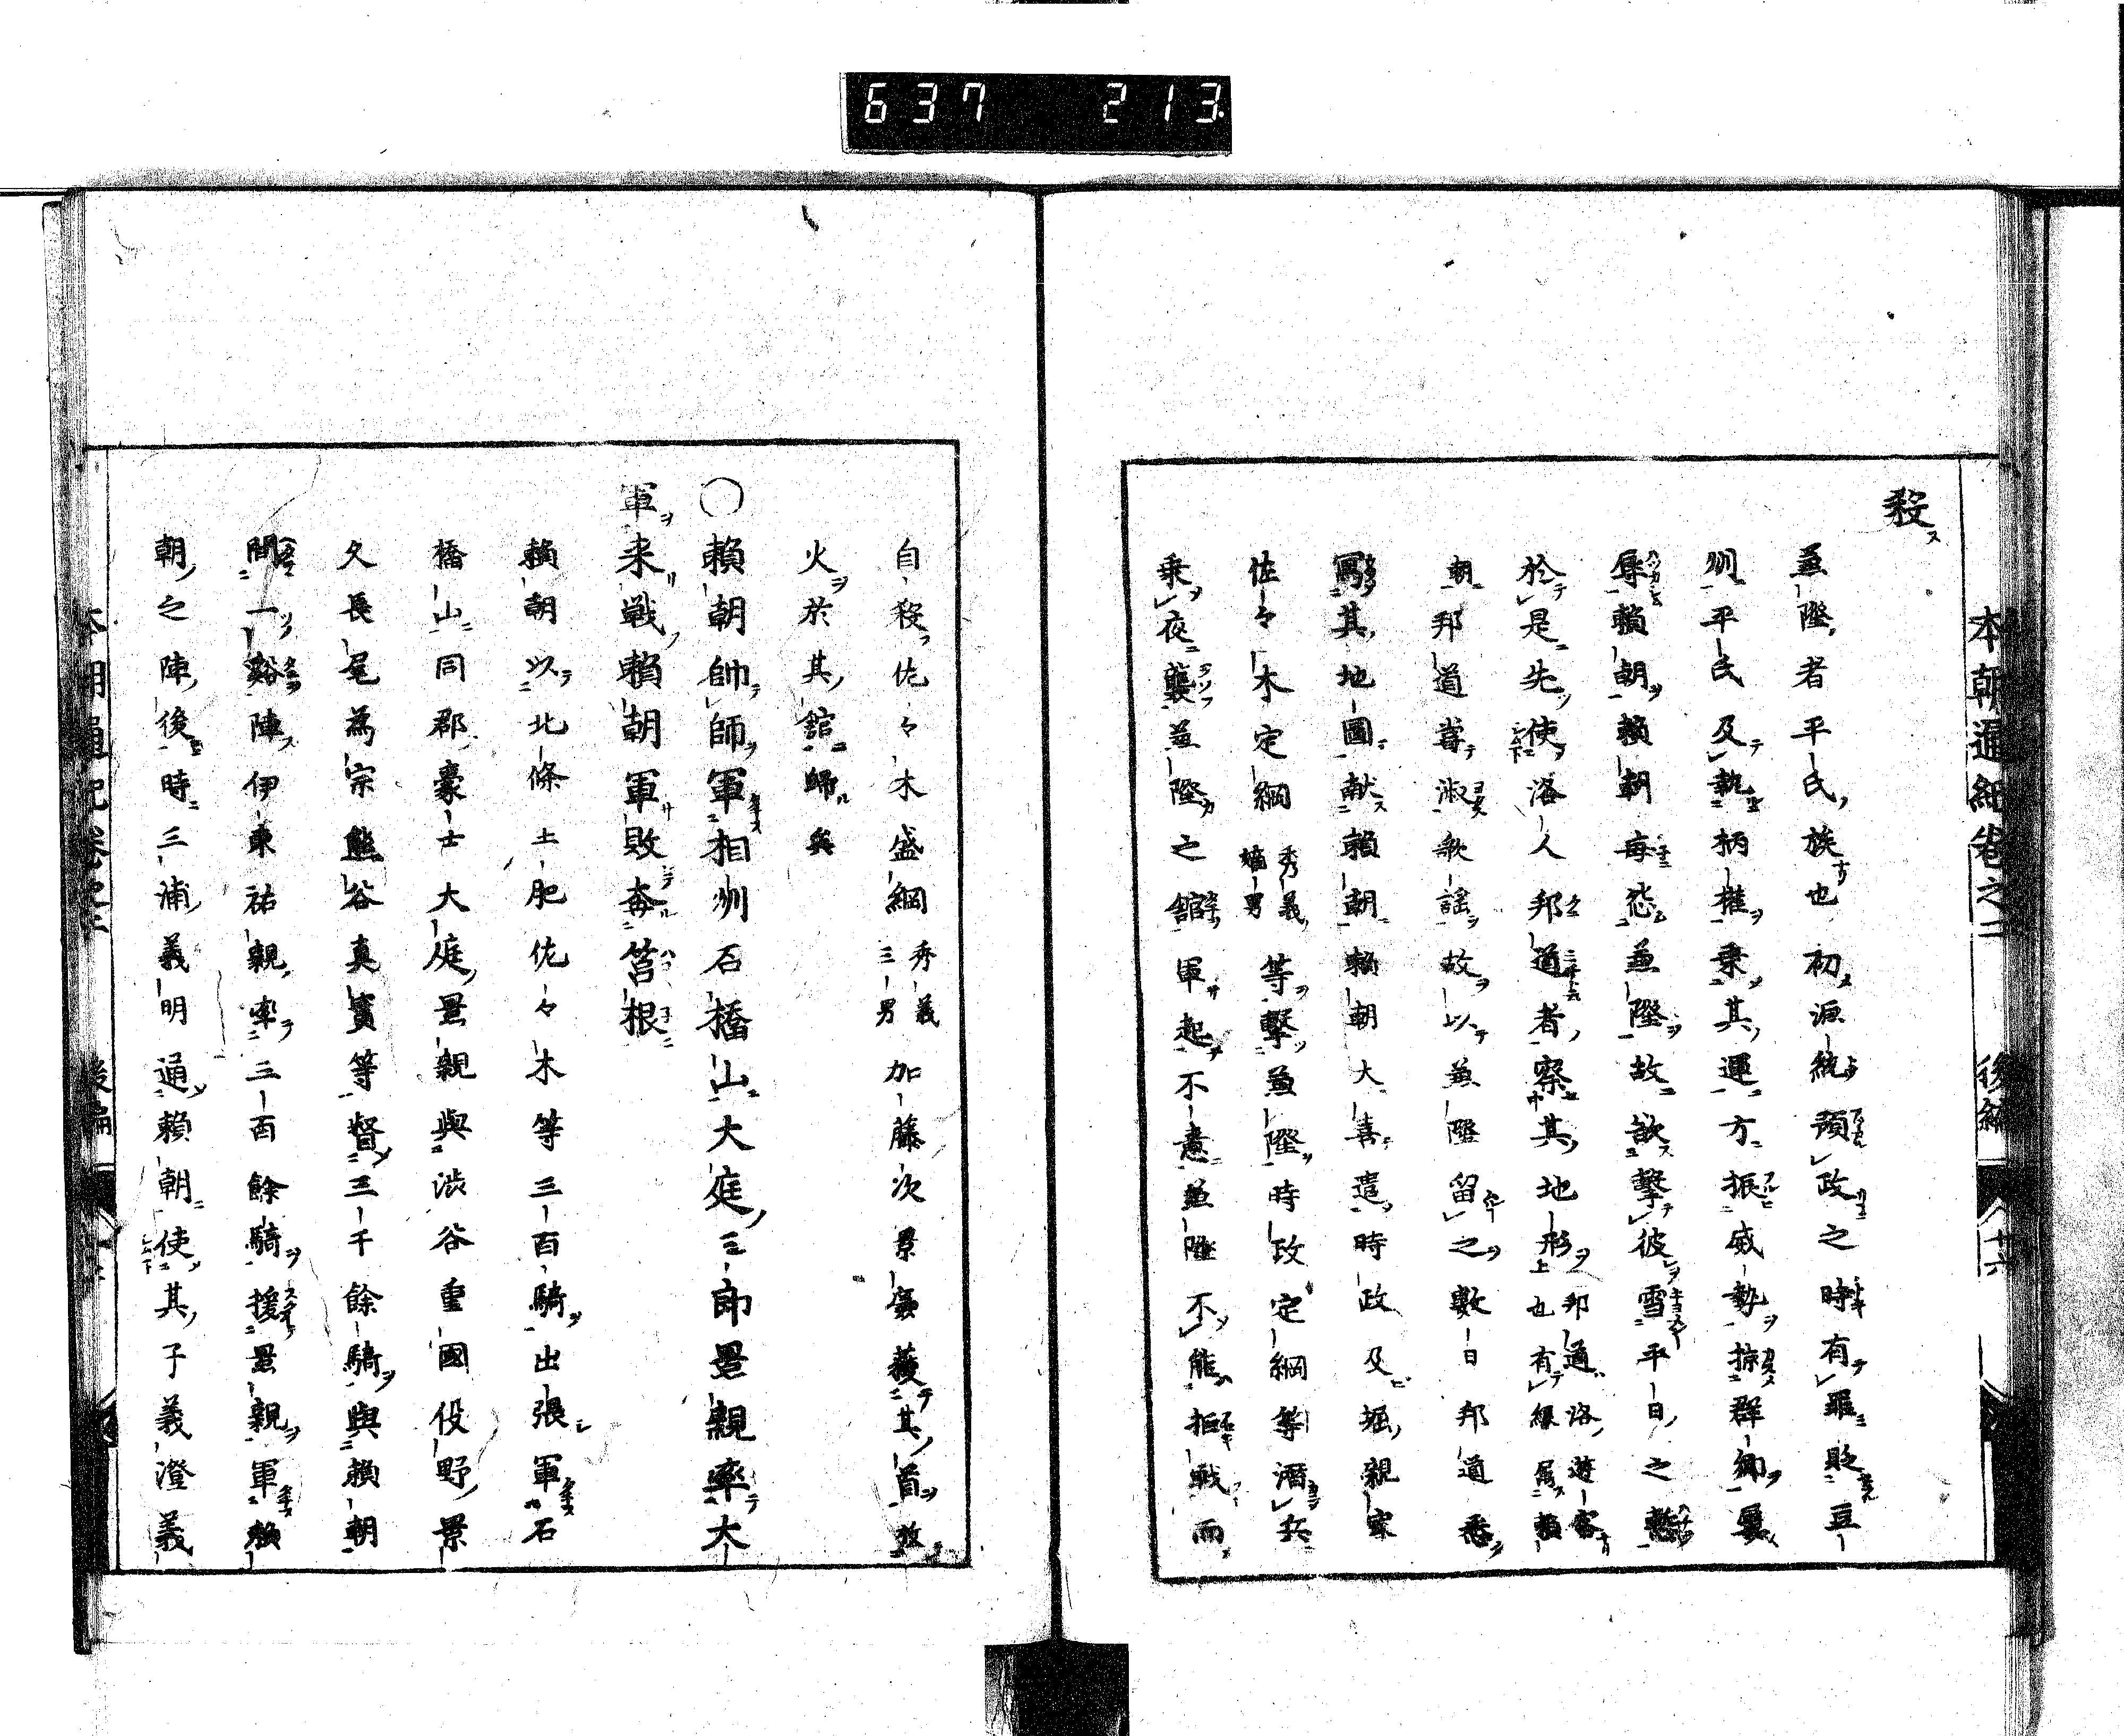 637 213
本朝通紀卷之二 後編 十六
殺ス
兼隆者平氏族也初源統預政之時有罪貶豆
州平氏及執柄權乗其運方振威勢掠群郷屢
辱賴朝賴朝毎恐兼隆故欲擊彼雪平日之愁
於是先使洛人邦道者察其地形邦通洛遊客也有縁属賴
朝邦道甞淑歌謡故以兼隆留之數日邦道悉
寫其地圖献賴朝賴朝大喜遣時政及堀親家
佐々木定綱秀義嫡男等擊兼隆時政定綱等潛兵
乗夜襲兼隆之舘軍起不意兼隆不能拒戦而
自殺佐々木盛綱秀義三男加藤次景廉獲其首放
火於其舘歸矣
〇賴朝帥師軍相州石橋山大庭三郎景親率大
軍来戦賴朝軍敗奔筥根
賴朝以北條土肥佐々木等三百騎出張軍石
橋山同郡豪士大庭景親與渋谷重國俣野景
久長尾為宗熊谷真實等督三千餘騎與賴朝
間一谿陣伊東祐親率三百餘騎援景親軍賴
朝之陣後時三浦義明通賴朝使其子義澄義